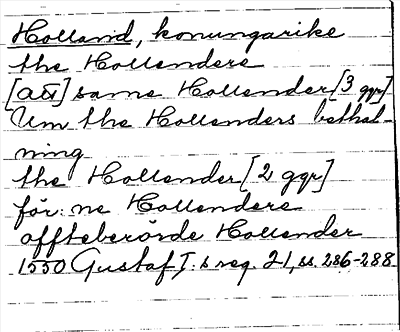 Holland, konungarike
the Hollendere
[att] same Hollender [3 ggr]
Um the Hollenders bethal-
ning
the Hollender [2 ggr]
för:ne Hollendere
offteberörde Hollender
1550 Gustaf I:s reg. 21, ss. 286-288